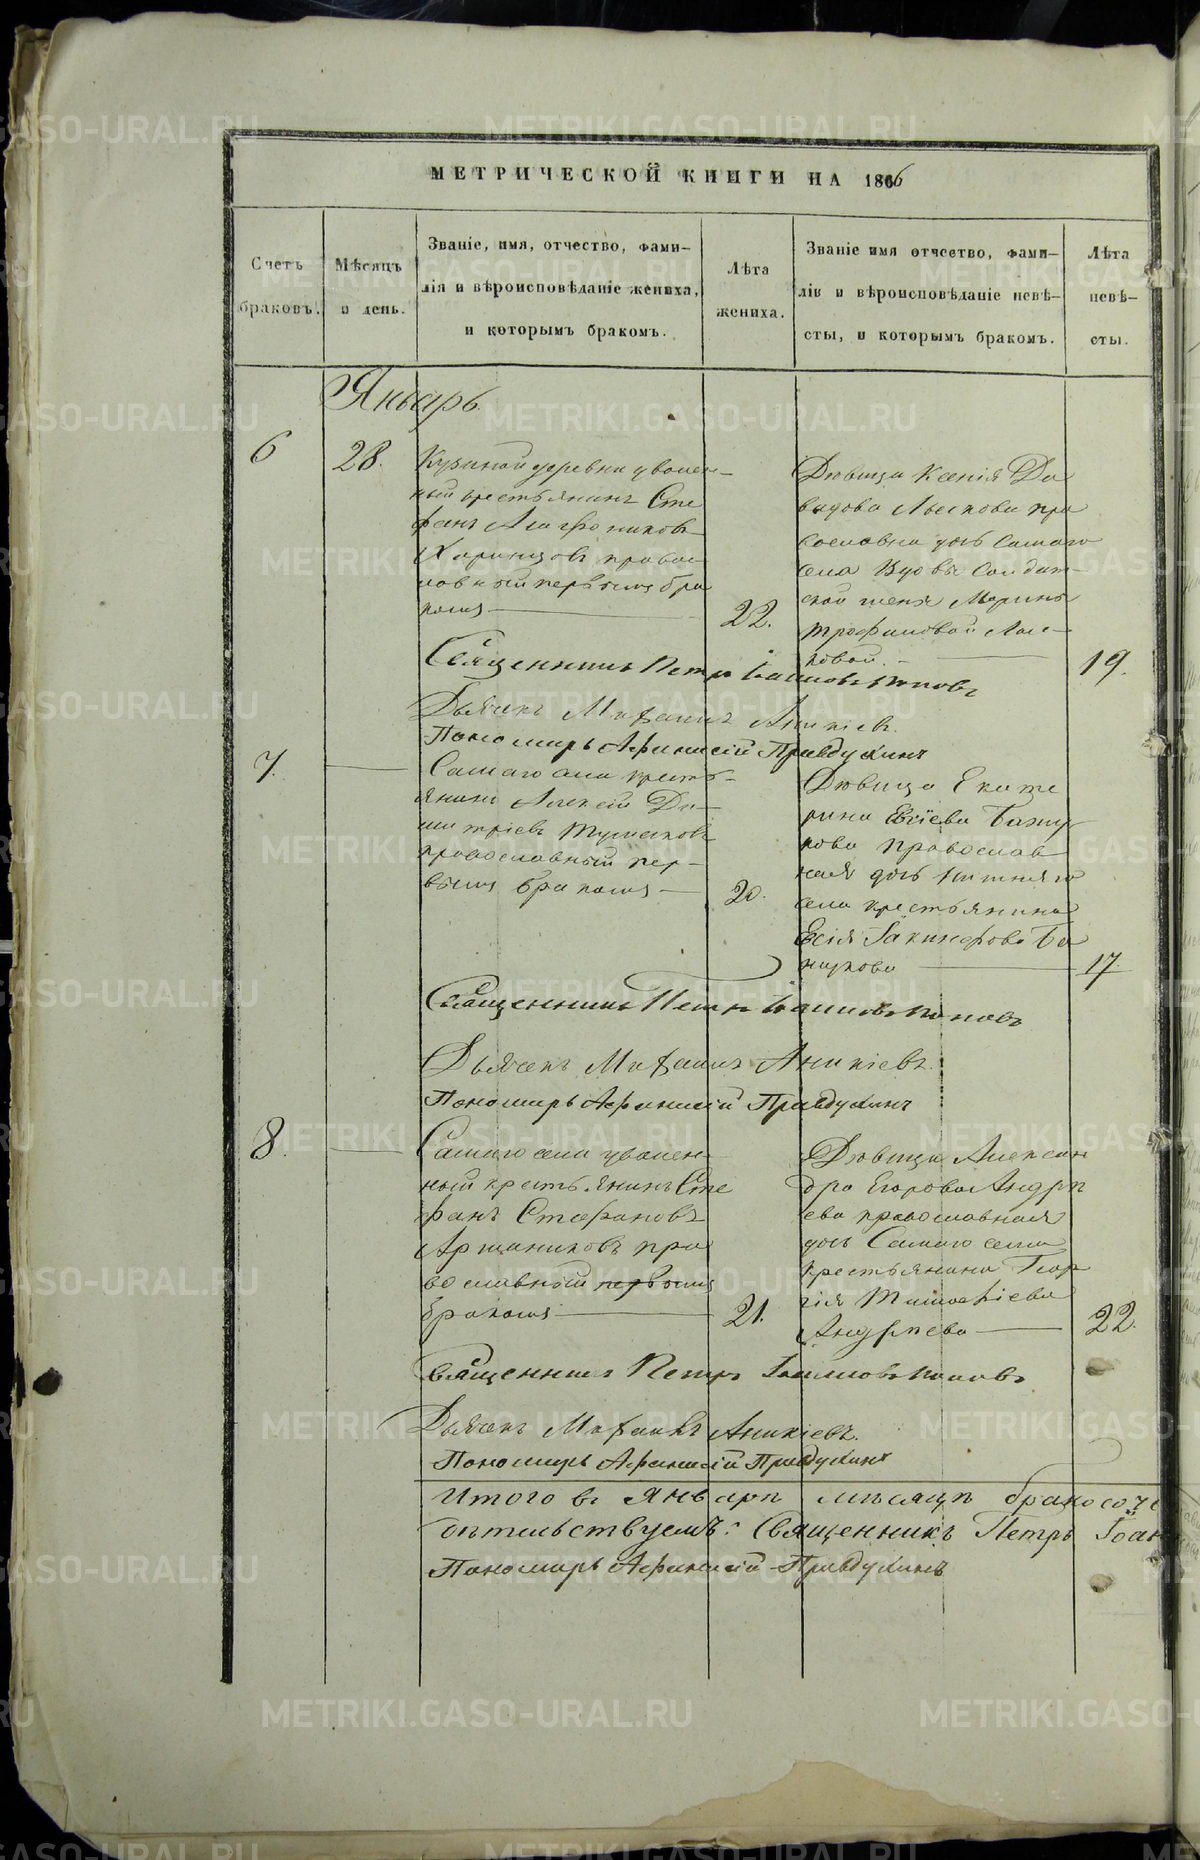 МЕТРИЧЕСКОЙ КНИГИ НА 1866
Счетъ браковъ.
Мѣсяцъ и день.
Званіе, имя, отчество, фами-
лія и вѣроисповѣданіе жениха,
и которымъ бракомъ.
Лѣта
жениха.
Званіе имя отчество, фами-
лія и вѣроисповѣданіе невѣ-
сты, и которымъ бракомъ.
Лѣта
невѣ-
сты.
Январь
6
28.
деревни уволен-
ный крестьянинъ Сте
фанъ
правос
лавный первымъ бра
комъ
22.
Дѣвица Ксенія Да
видова Лыскова пра
вославна дочь самаго
села вдовы солдат-
ской жены Марины
Трофимовой Лыс-
ковой.
19.
Священникъ Петръ Іоанновъ Поповъ
Дьячекъ Михаилъ Аникіевъ.
Пономарь Афанасій Правдухинъ
7.
Самаго села кресть-
янинъ Алексей Ди-
митріевъ
православный пер-
вымъ бракомъ
20.
Дѣвица Екате
рина
православ
ная дочь
села крестьянина
17
Священникъ Петръ Іоанновъ Поповъ
Дьячекъ Михаилъ Аникіевъ.
Пономарь Афанасій Правдухинъ
8.
Самаго села уволен-
ный крестьянинъ Сте
фанъ Стефановъ
Аржаниковъ пра
вославный первымъ
бракомъ
21.
Дѣвица Алексан
дра Егорова Андре
ева православная
дочь Самаго села
крестьянина Геор
гія Тимофіева
Андреева
22.
Священникъ Петръ Іоанновъ Поповъ
Дьячекъ Михаилъ Аникіевъ.
Пономарь Афанасій Правдухинъ
Итого въ Январѣ мѣсяцѣ бракосоче
Священникъ Петръ Іоан
Пономарь Афанасій Правдухинъ
METRIKI.GASO-URAL.RU